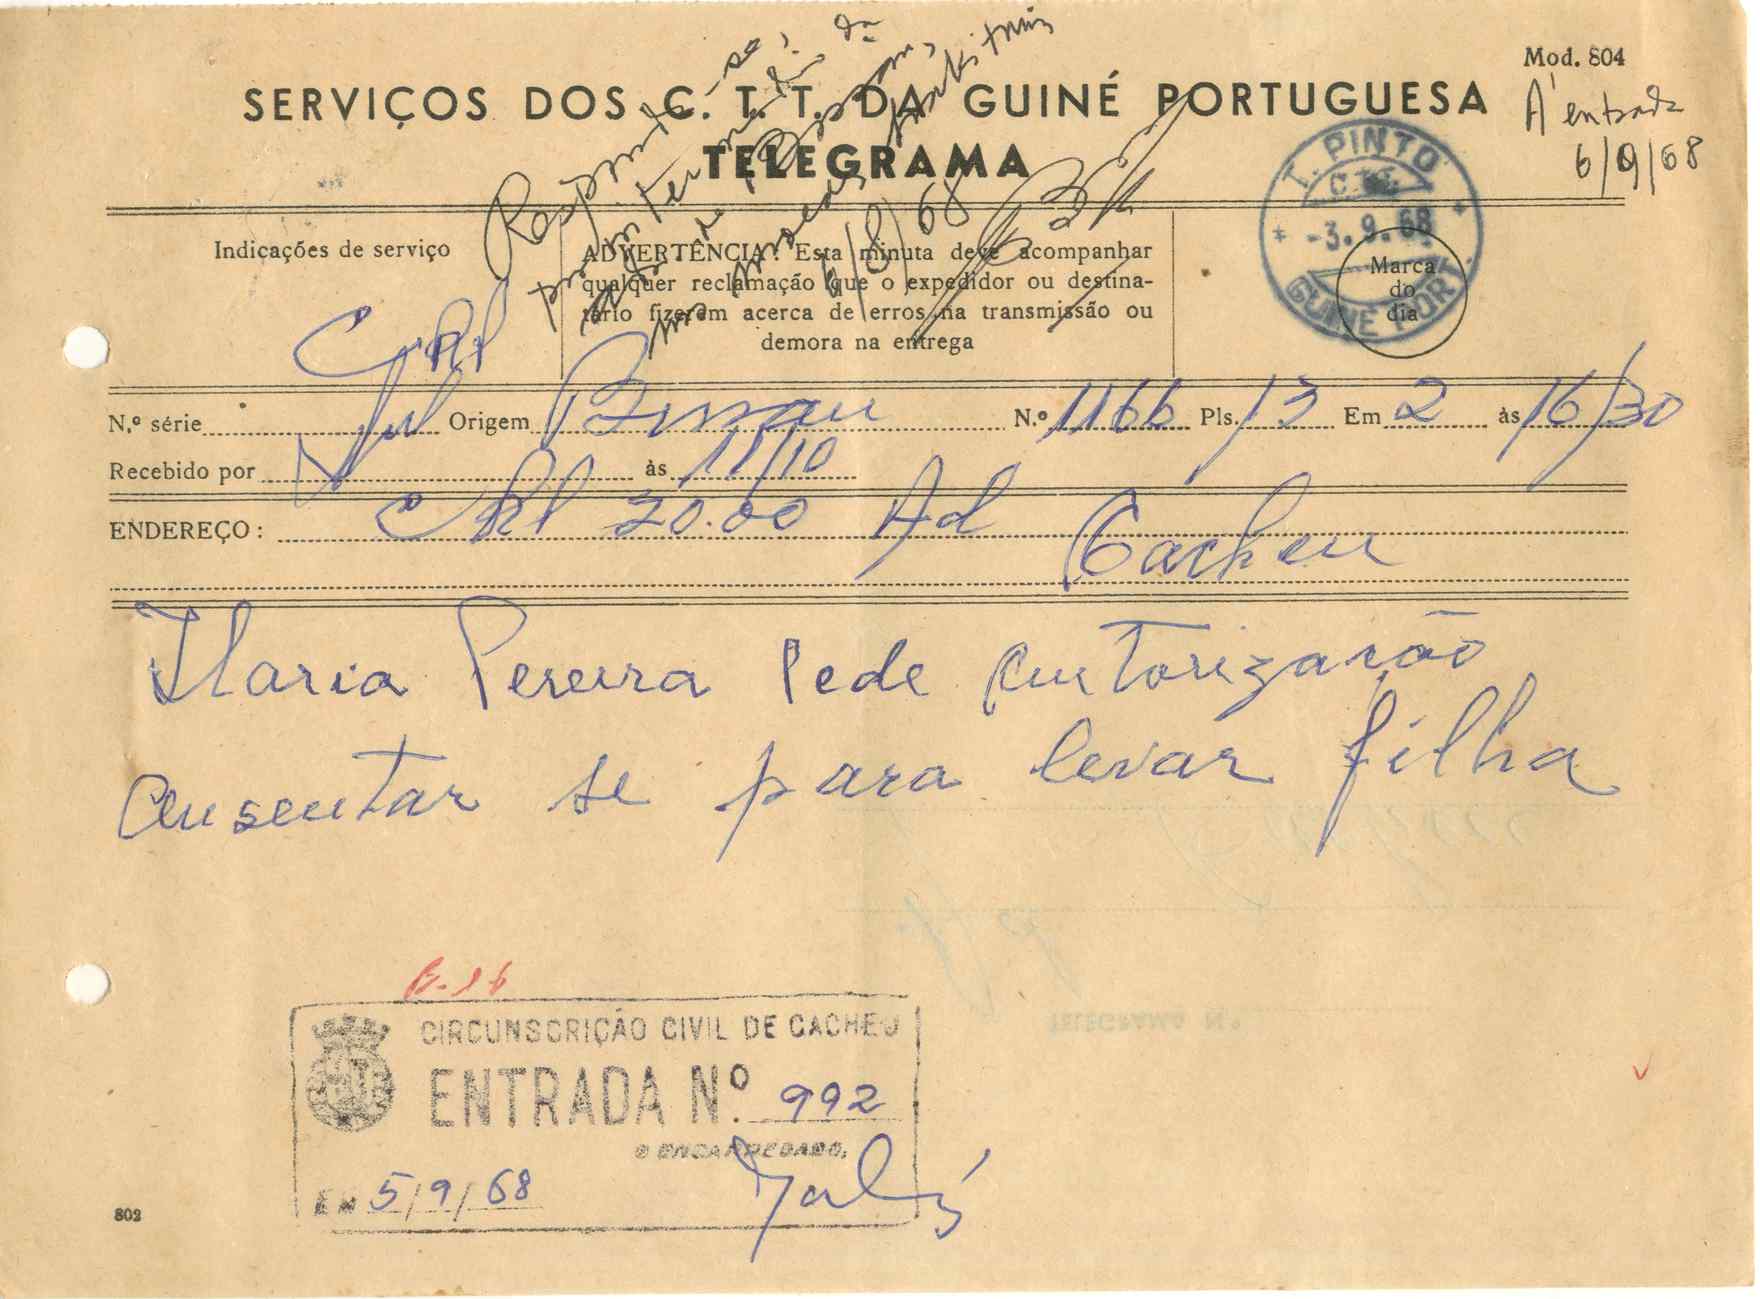 Mod. 804
SERVIÇOS DOS C. T. T. DA GUINÉ PORTUGUESA
À entrada
6/9/68
TELEGRAMA
T. PINTO
C.T.T.
-3. 9. 68
GUINÉ PORT.
Marca
do
dia
Indicações de serviço
ADVERTÊNCIA: Esta minuta deve acompanhar
qualquer reclamação que o expedidor ou destina-
tário fizerem acerca de erros na transmissão ou
demora na entrega
6/9/68
N.º série Origem Bissau N.º 1166 Pls. 13 Em 2 às 16/30
Recebido por às 11/10
ENDEREÇO: 20.00 Ad
Cacheu
Maria Pereira Pede autorização
ausentar se para levar filha
CIRCUNSCRIÇÃO CIVIL DE CACHEU
ENTRADA N.º 992
O ENCARREGADO,
EM 5/9/68
802
TELEGRAMA N.º